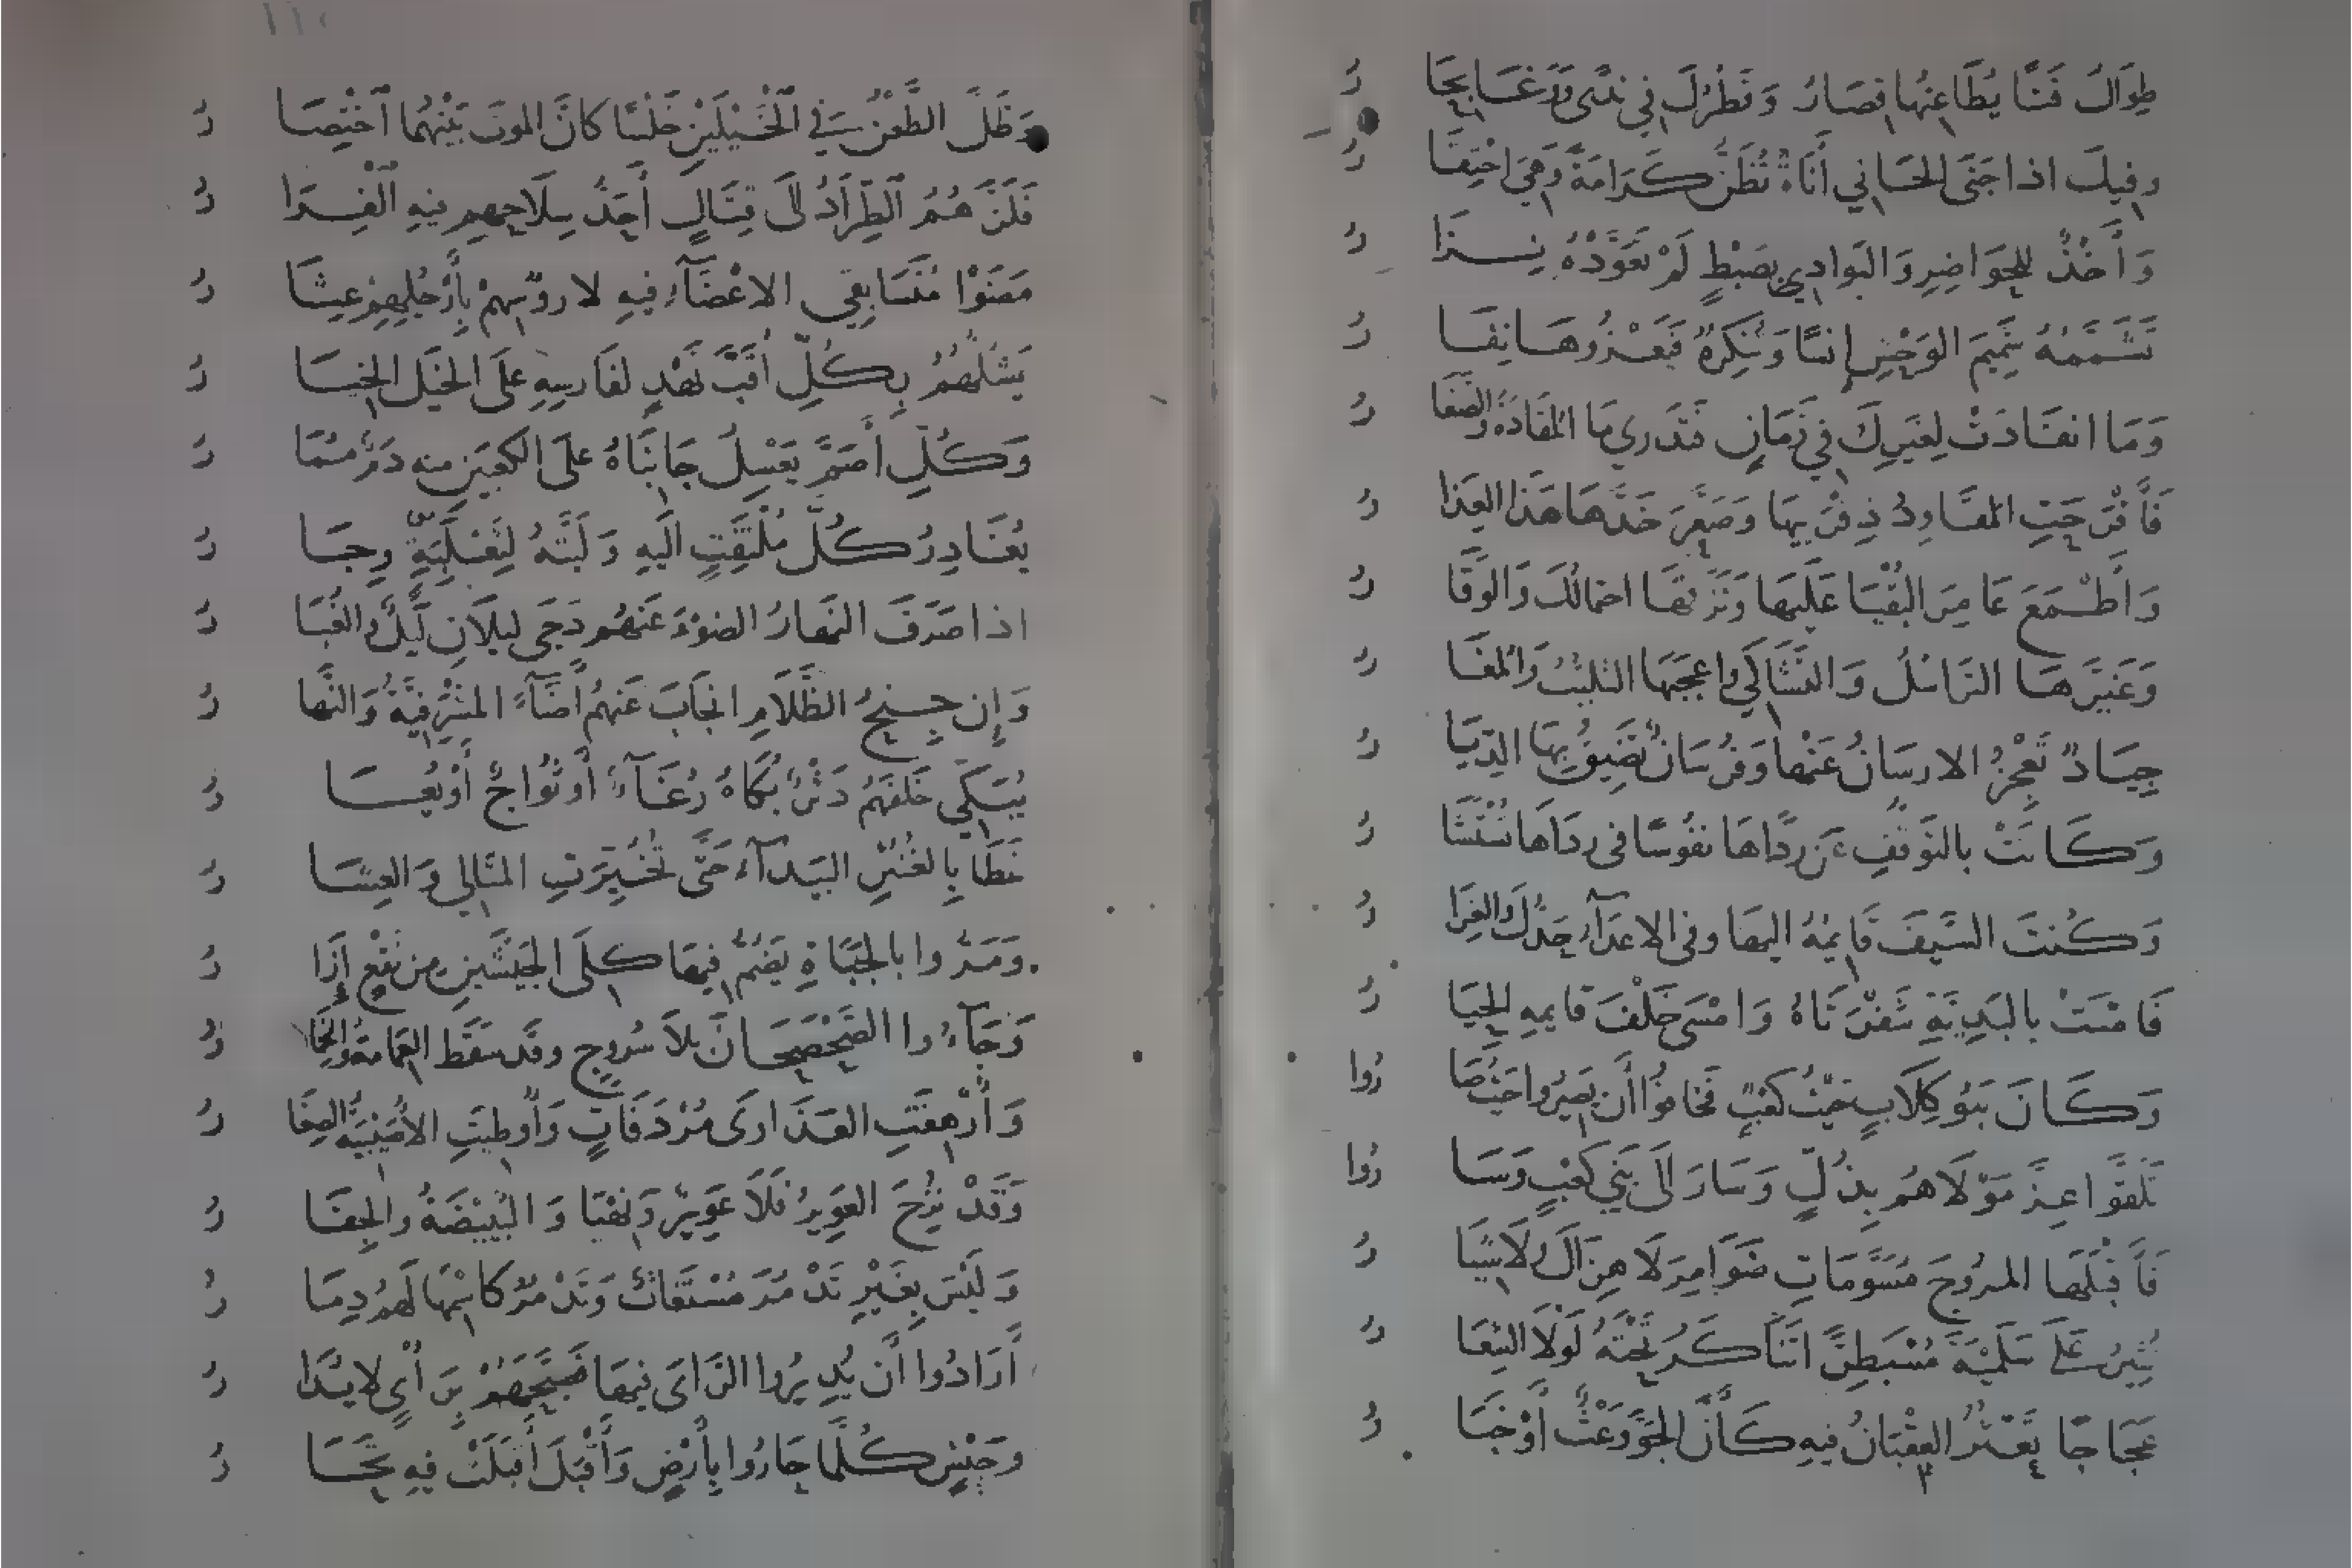 طِوَالُ قَنًا يُطَاعِنُهَا قِصَارُ وَقَطْرُكَ فِي نَدًى وَوَغًى بِحَارُ
وفِيكَ اذا جَنَى الجَانِي أَنَاةٌ تُظَنُّ كَرَامَةً وَهِيَ احْتِقَارُ
وَأَخْذٌ لِلحَوَاضِرِ وَالبَوَادِي بِضَبْطٍ لَمْ تَعَوَّدْهُ نِزَارُ
تَشَمَّمُهُ شَمِيمَ الوَحْشِ إِنسًا وَتُنكِرُهُ فَيَعْرُوهَا نِفَارُ
وَمَا انقَادَتْ لِغَيرِكَ فِي زَمَانٍ فَتَدرِي مَا المَقَادَةُ وَالصَّغَارُ
فَأَقْرَحَتِ المَقَاوِدُ ذِفْرَيَيهَا وَصَعَّرَ خَدَّهَا هَذَا العِذَارُ
وَأَطْمَعَ عَامِرَ البُقْيَا عَلَيهَا وَنَزَّقَهَا احتِمَالُكَ وَالوَقَارُ
وَغَيَّرَهَا التَرَاسُلُ وَالتَشَاكِي وَاعجَبَهَا التَلَبُّبُ وَالمُغَارُ
جِيَادٌ تَعْجِزُ الارسَانُ عَنْهَا وَفُرْسَانٌ تَضِيقُ بِهَا الدِّيَارُ
وَكَانَتْ بالتَوَقُّفِ عَن رَدَاهَا نفُوسًا فى رَدَاهَا تُسْتَشَارُ
وَكُنتَ السَّيفَ قَايِمُهُ اليهَا وفى الاعدَآءِ حَدُّكَ وَالغِرَارُ
فَامْسَتْ بالبَدِيَّةِ شَفْرَتَاهُ وَامْسَى خَلْفَ قايمِهِ الحِيَارُ
وَكَانَ بَنُو كِلَابٍ حَيْثُ كَعْبٍ فَخَافُوا أَن يَصِيرُوا حَيْثُ صَارُوا
تَلَقَّوا عِزَّ مَوْلَاهُم بِذُلٍّ وَسَارَ الَى بَنِي كَعْبٍ وَسَارُوا
فَأَقْبَلَهَا المرُوجَ مُسَوَّمَاتٍ ضَوَامِرَ لَا هِزَالَ وَلَا شِيَارُ
تُثِيرُ عَلَى سَلَمْيَةَ مُسْبَطِرًّا تَنَاكَرُ تَحْتَهُ لَوْلَا الشِعَارُ
عَجَاجًا تَعْثُرُ العِقْبَانُ فِيهِ كَأَنَّ الجَوَّ وَعْثٌ أَوْ خَبَارُ
وَظَلَّ الطَّعْنُ فِى الْخَيْلَيْنِ خَلْسًا كَانَّ الموتَ بَيْنَهُمَا اخْتِصَارُ
فَلَزَّهُمُ الطِّرَادُ الَى قِتَالٍ أَحَدُّ سِلَاحِهِم فِيهِ الْفِرَارُ
مَضَوْا مُتَسَابِقِى الاعْضَآءِ فِيهِ لارُؤسِهِمْ بِأَرْجُلِهِمْ عِثَارُ
يَشُلُّهُمُ بِكُلِّ أَقَبَّ نَهْدٍ لفَارِسِهِ عَلَى الخَيلِ الخِيَارُ
وَكُلِّ أَصَمَّ يَعْسِلُ جَانِبَاهُ عَلَى الكَعبَينِ منه دَمٌ مُمَارُ
يُغَادِرُ كُلَّ مُلْتَفِتٍ الَيهِ وَلَبَّتُهُ لِثَعْلَبِهِ وِجَارُ
اذا صَرَفَ النَهَارُ الضوْءَ عَنهُم دَجَى لَيلَانِ لَيلٌ وَالغُبَارُ
وَإِن جِنحُ الظَّلَامِ انْجَابَ عَنهُم أَضَآءَ المَشْرَفِيَّةُ وَالنَّهَارُ
يُبَكِّي خَلفَهُم دَثْرٌ بُكَاهُ رُغَآءٌ أَو ثُوَاجٌ أَوْ يُعَارُ
غَطَا بِالعُثْيَرِ البَيدآءَ حَتَّى تُخُيِّرَتِ المَتَالِي وَالعِشَارُ
وَمَرُّوا بالجَبَاةِ يَضُمُّ فِيهَا كِلَى الجَيشَينِ مِن نَقْعٍ إِزَارُ
وَجَآءُوا الصَّحْصَحَانَ بِلَا سُرُوجٍ وقَد سَقَطَ العِمَامَةُ وَالخِمَارُ
وَأُرْهِقَتِ العَذَارَى مُرْدَفَاتٍ وَأُوطِيَتِ الأُصَيْبِيَةُ الصِغَارُ
وَقَدْ نُزِحَ العَوِيرُ فَلَا عَوِيرٌ وَنِهْيَا وَالبُيَيْضَةُ وَالجِفَارُ
وَلَيْسَ بِغَيْرِ تَدْمُرَ مُسْتَغَاثٌ وَتَدْمُرُ كَاسْمِهَا لَهُم دِمَارُ
أَرَادُوا أَن يُدِيرُوا الرَّاىَ فِيهَا فَصَبَّحَهُمْ بِرَأْيٍ لا يُدَارُ
وَجَيْشٍ كُلَّمَا حَارُوا بِأَرْضٍ وَأَقْبَلَ أَقْبَلَتْ فِيهِ تَحَارُ